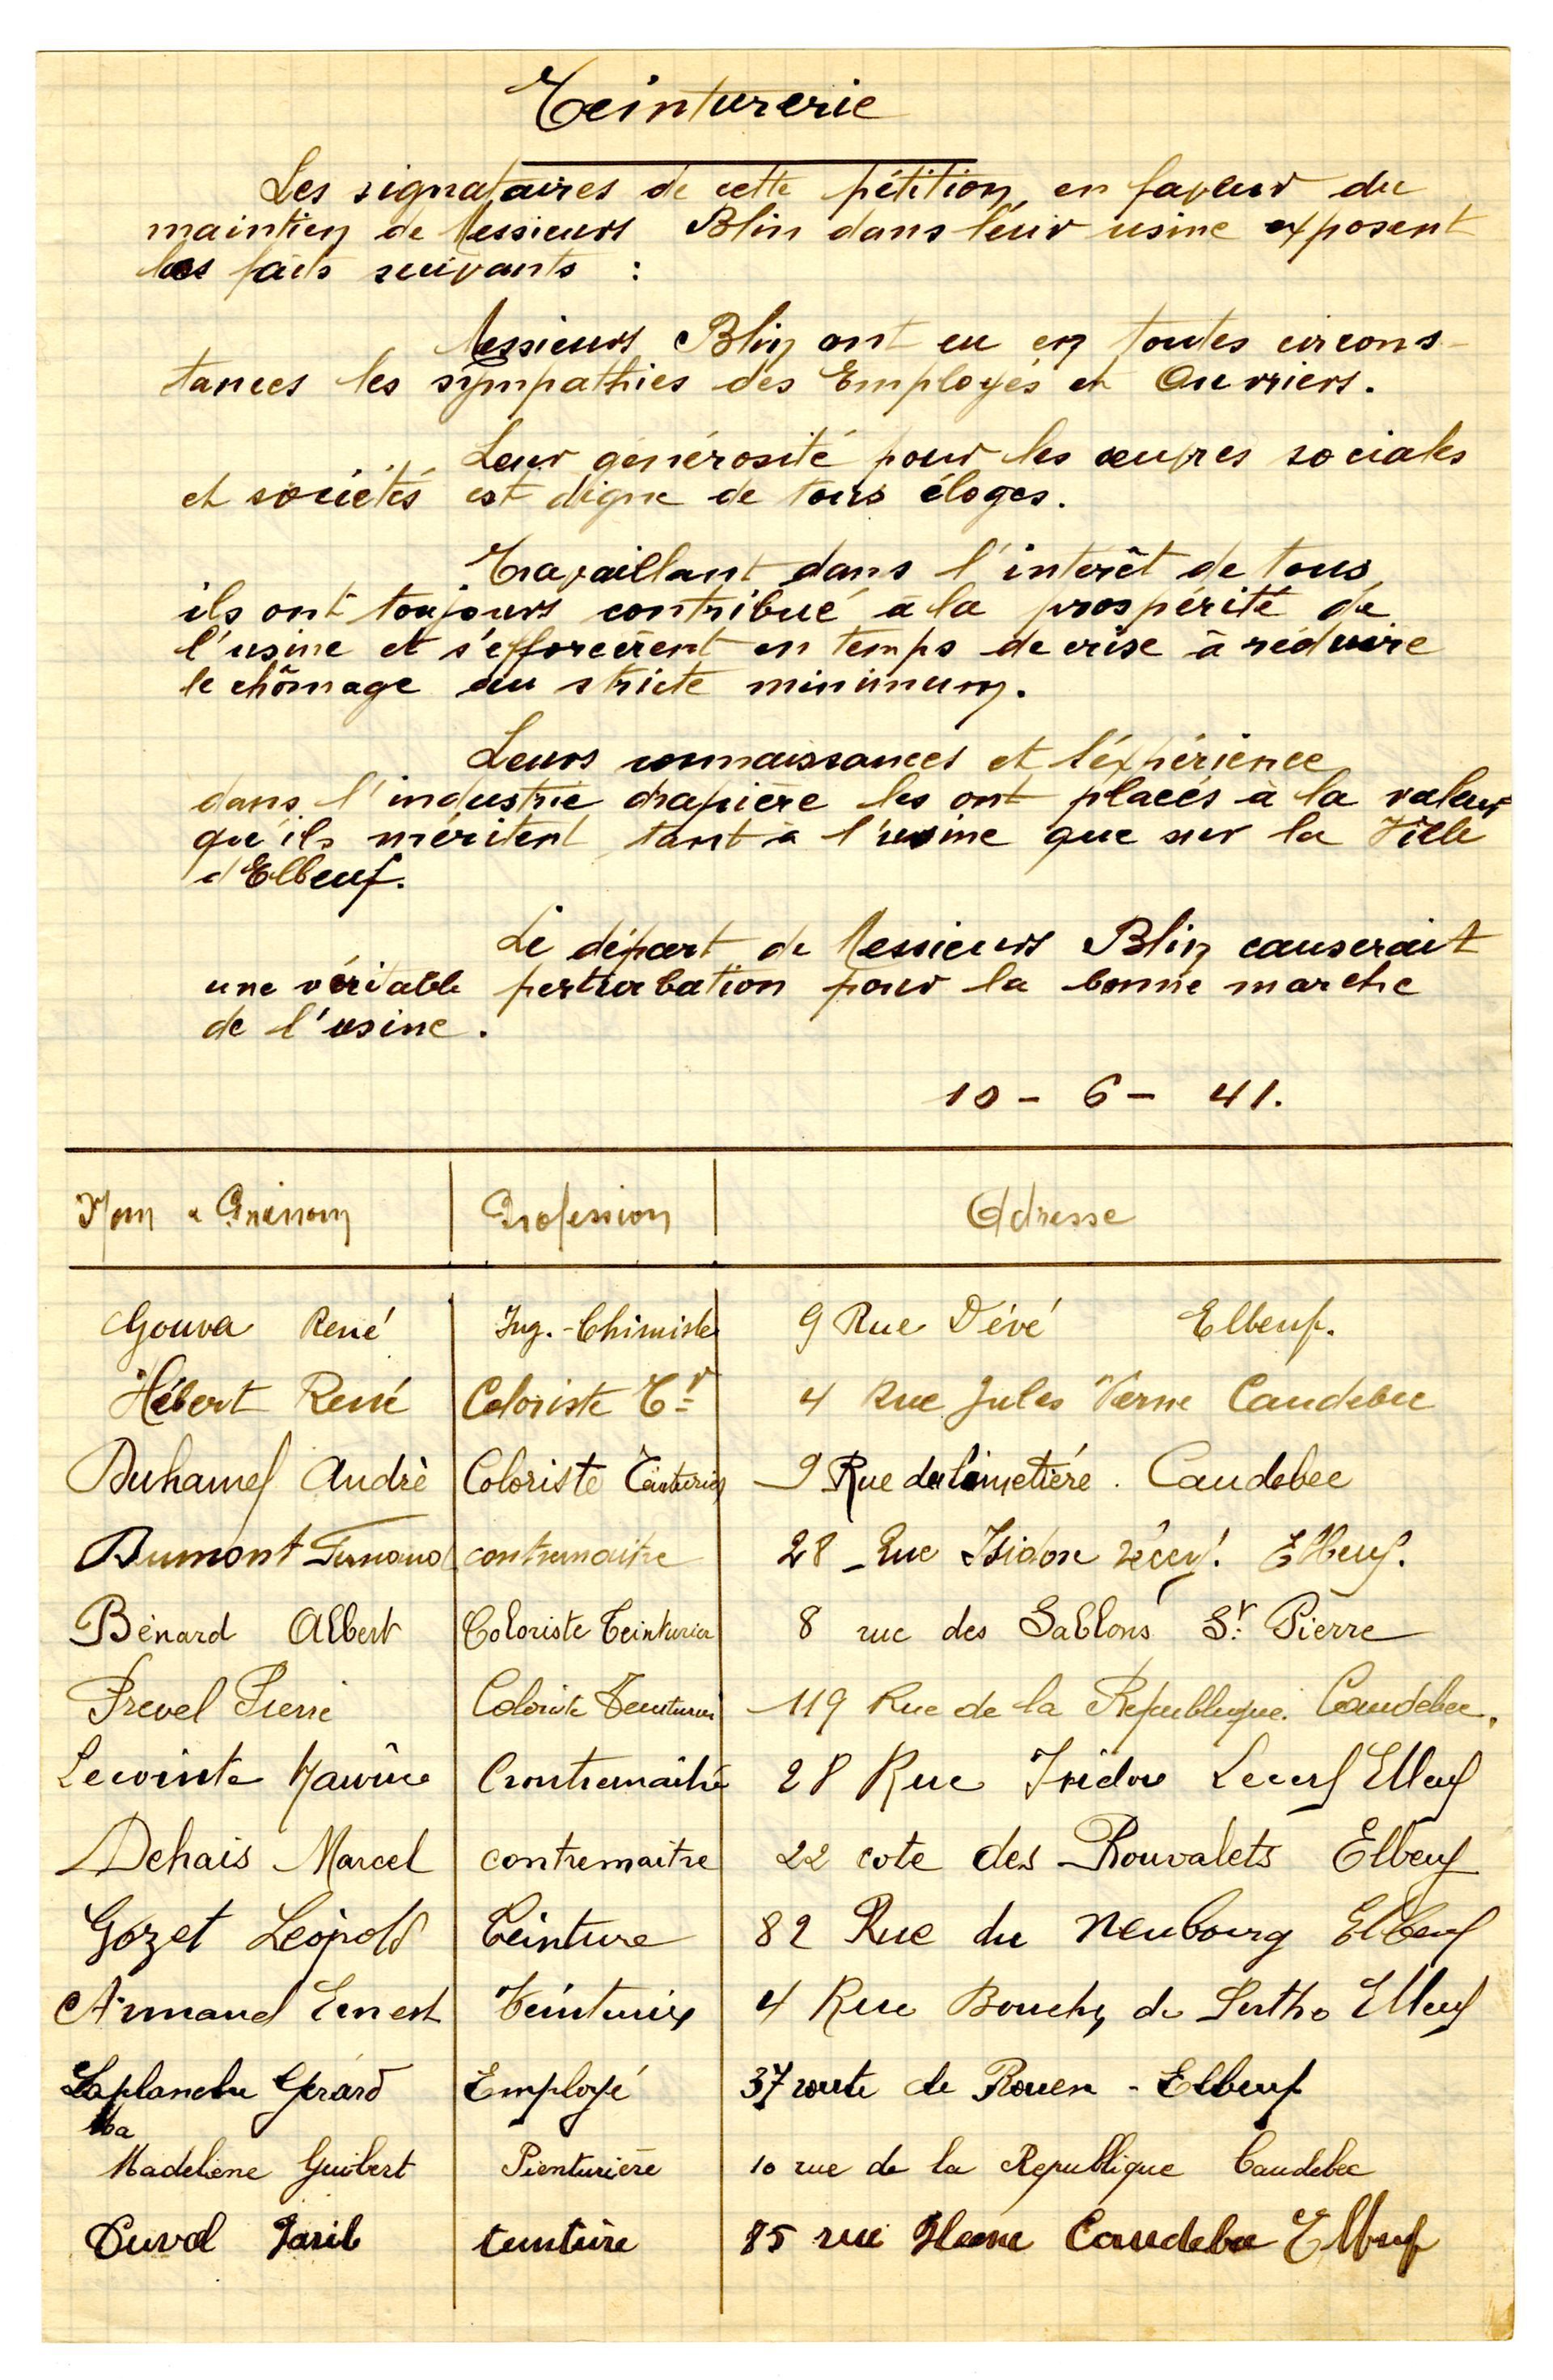 Teinturerie
Les signataires de cette pétition, en faveur du
maintien de Messieurs Blin dans leur usine exposent
les faits suivants :
Messieurs Blin ont eu en toutes circons-
tances les sympathies des Employés et Ouvriers.
Leur générosité pour les œuvres sociales
et sociétés est digne de tous éloges.
Travaillant dans l'intérêt de tous,
ils ont toujours contribué à la prospérité de
l'usine et s'efforcèrent en temps de crise à réduire
le chômage au stricte minimum.
Leurs connaissances et l'expérience
dans l'industrie drapière les ont placés à la valeur
qu'ils méritent tant à l'usine que sur la Ville
d'Elbeuf.
Le départ de Messieurs Blin causerait
une véritable perturbation pour la bonne marche
de l'usine.
10 - 6 - 41.
Nom & Prénom Profession Adresse
Gouva René Ing.-Chimiste 9 Rue Dévé Elbeuf.
Hébert René Coloriste Tr 4 Rue Jules Verne Caudebec
Duhamel André Coloriste Teinturier 9 Rue du Cimetière. Caudebec
Dumont Fernand contremaitre 28 Rue Isidore Elbeuf.
Bénard Albert Coloriste Teinturier 8 rue des Sablons St Pierre
Prevel Pierre Coloriste Teinturier 119 Rue de la Republique. Caudebec.
Lecointe Maurice Contremaitre 28 Rue Isidore Lecerf Elbeuf
Dehais Marcel contremaitre 22 cote des Rouvalets Elbeuf
Gozet Léopold Teinture 82 Rue du Neubourg Elbeuf
Armand Ernest Teinturier 4 Rue Boucher de Perthe Elbeuf
Laplanche Gérard Employé 37 route de Rouen - Elbeuf
Ma
Madeliene Guibert Pienturière 10 rue de la Republique Caudebec
Duval 85 rue Caudebec Elbeuf